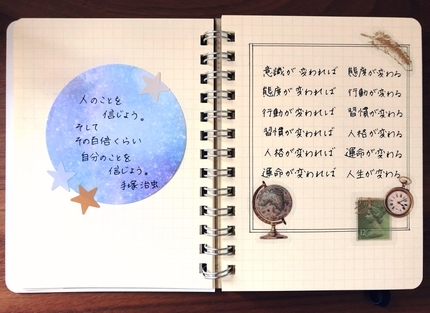 人のことを
信じよう。
そして
その百倍くらい
自分のことを
信じよう。
手塚治虫
意識が変われば 態度が変わる
態度が変われば 行動が変わる
行動が変われば 習慣が変わる
習慣が変われば 人格が変わる
人格が変われば 運命が変わる
運命が変われば 人生が変わる